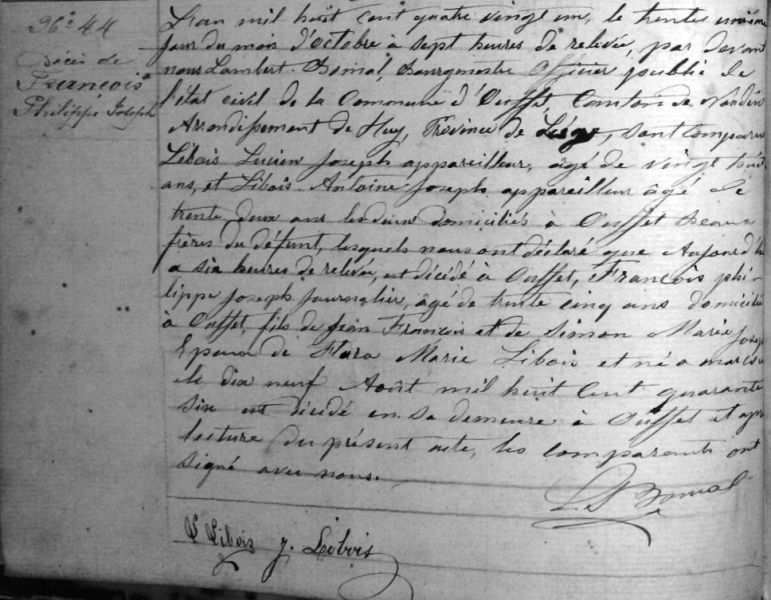 N° 44
Décès de
François
Philippe Joseph
L'an mil huit cent quatre vingt un, le trente unième
jour du mois d'octobre à sept heures de relevée, par devant
nous Lambert Bomal, Bourgmestre Officier public de
l'état civil de la Commune d'Ouffet, Canton de Nandrin
Arrondissement de Huy, Province de Liége, sont comparus
Libois Lucien Joseph appareilleur, âgé de vingt huit
ans, et Libois Antoine Joseph appareilleur âgé de
trente deux ans les deux domiciliés à Ouffet Beaux
frères du défunt, lesquels nous ont déclaré que Aujourd'hui
a six heures de relevée, est décédé à Ouffet, François phi-
lippe Joseph journalier, âgé de trente cinq ans domicilié
à Ouffet, fils de Jean François et de Simon Marie Joseph
Epoux de Flora Marie Libois et né a
le dix neuf Août mil huit cent quarante
six est décédé en sa demeure à Ouffet et après
lecture du présent acte, les comparants ont
signé avec nous.
L Bomal
L Libois J. Libois